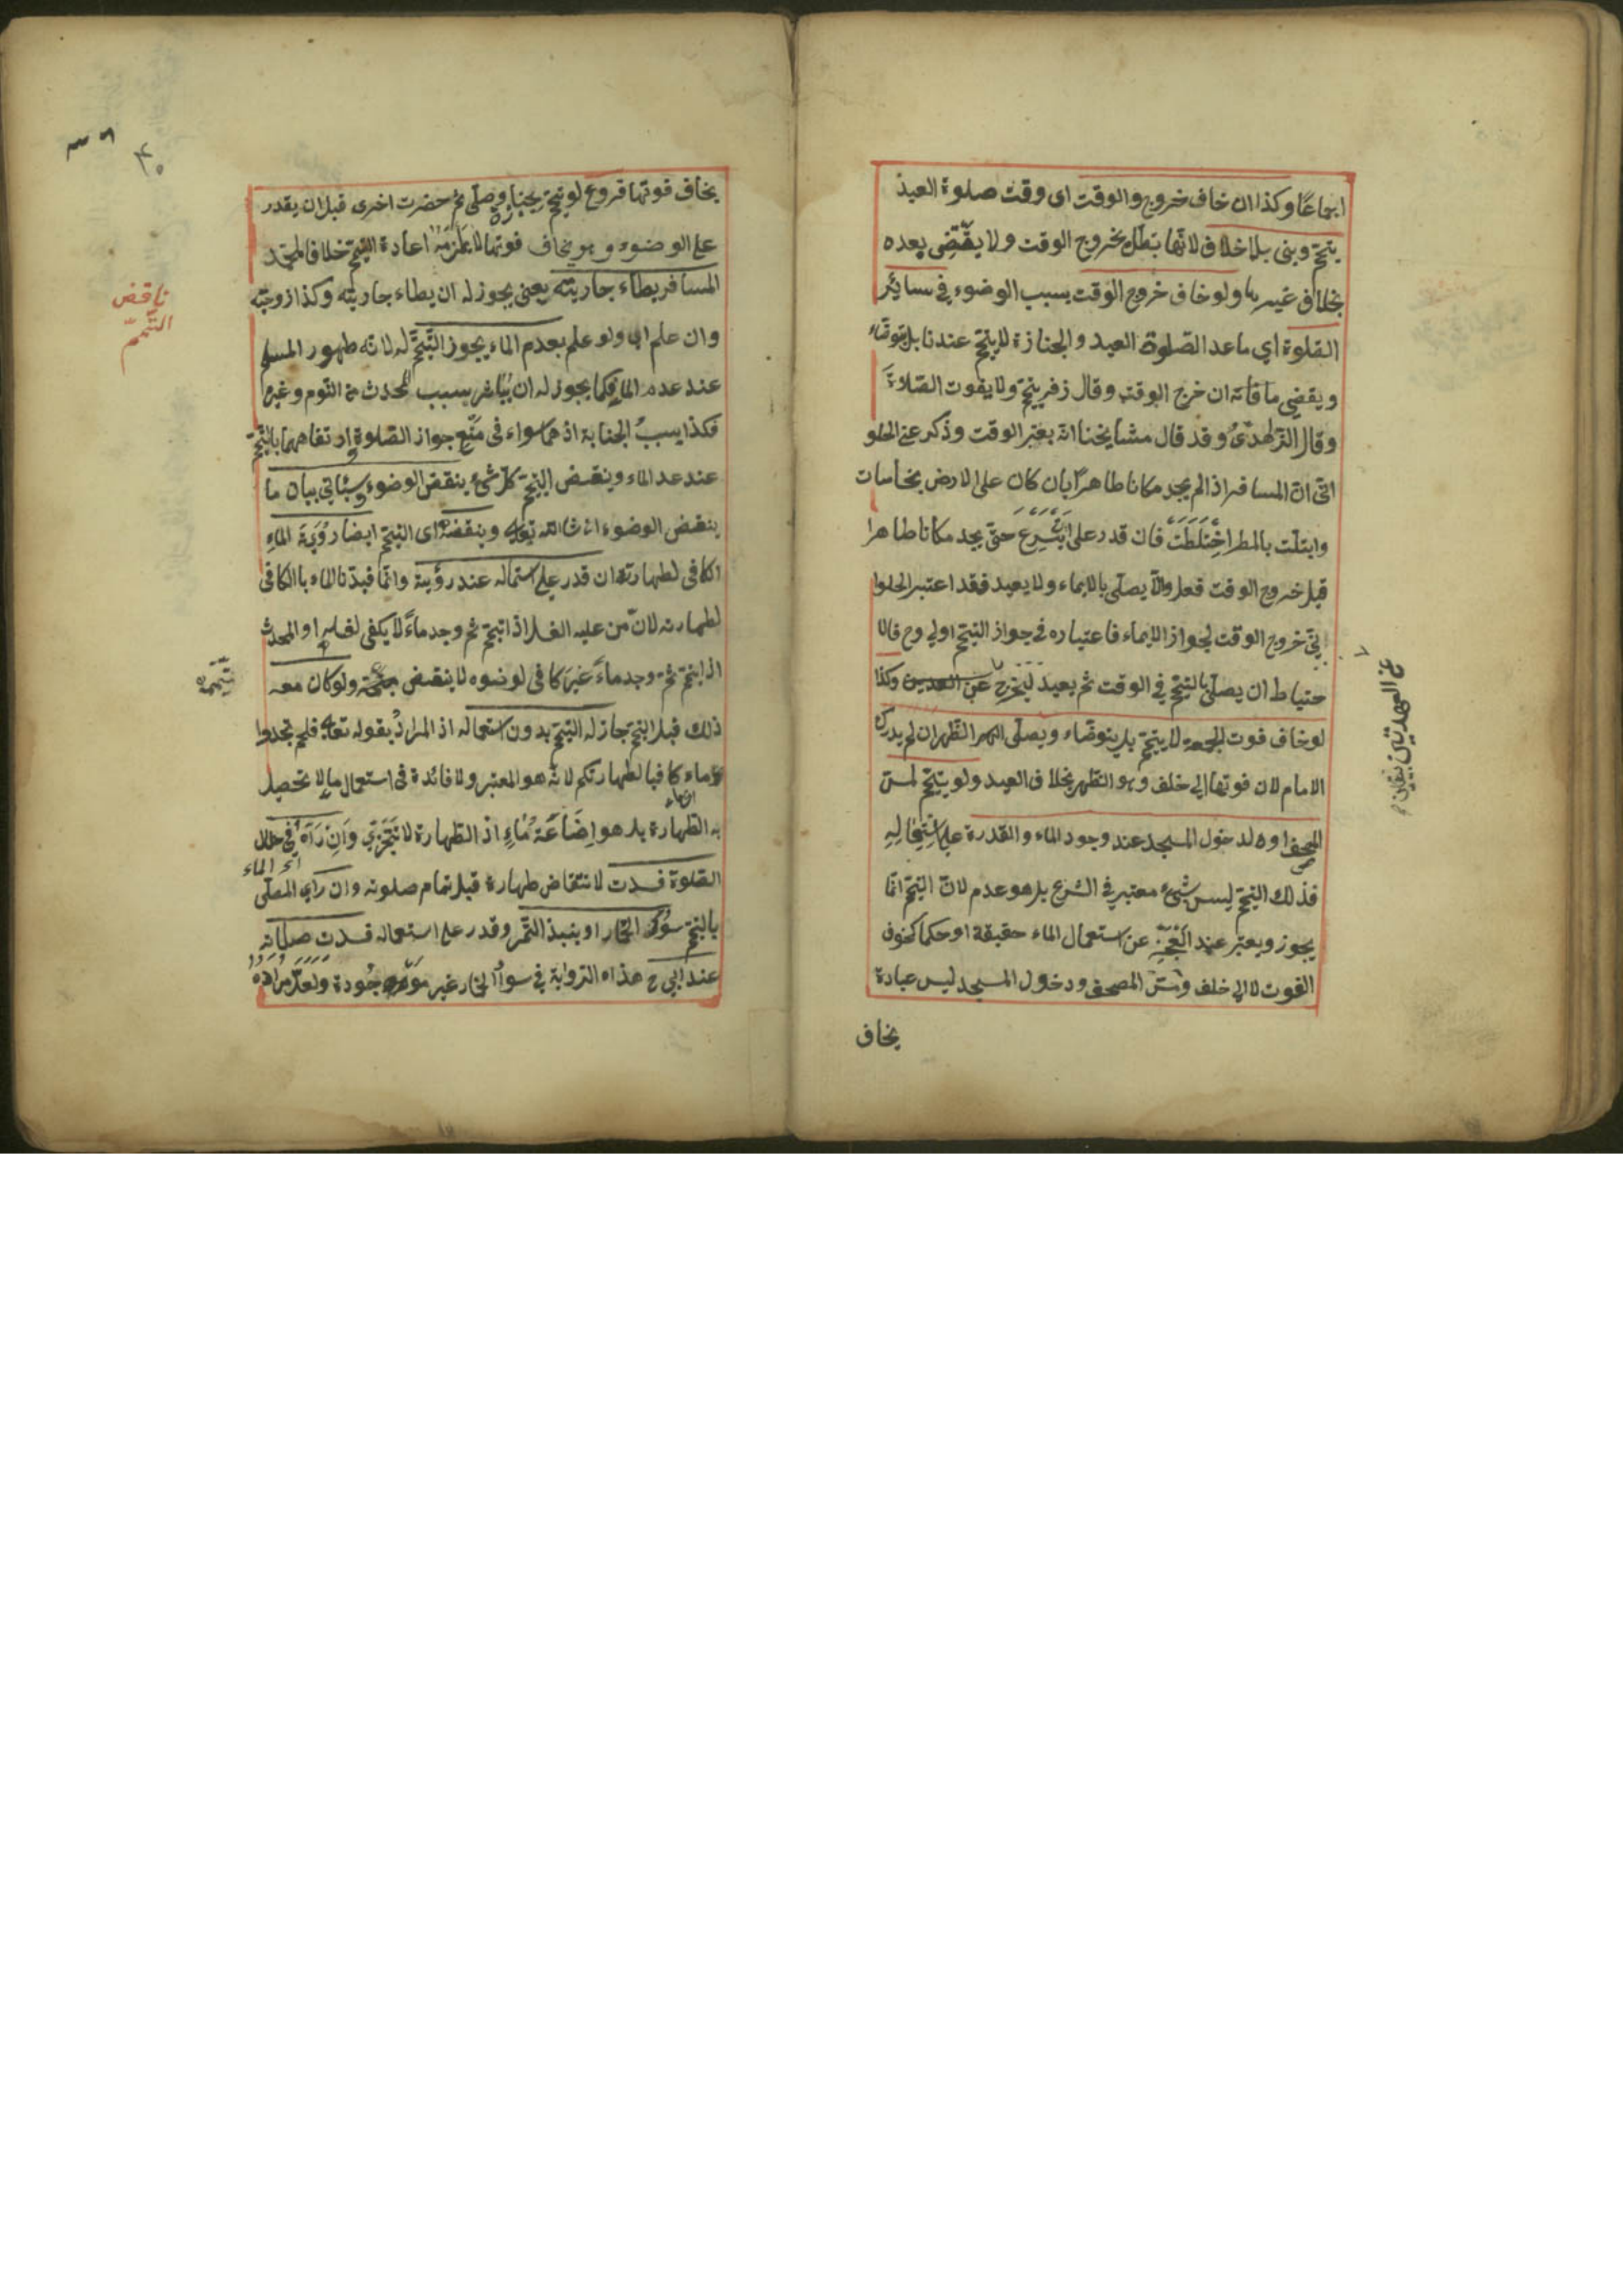 اجماعًا وكذا ان خاف خروج والوقت اى وقت صلوة العيد
يتيمّم ويبنى بلا خلاف لانّها تبطل بخروج الوقت ولا يقضى بعده
بخلاف غيرها ولو خاف خروج الوقت بسبب الوضوء في سائر
الصّلوة اي ما عد الصّلوة العيد والجنازة لا يتيمّم عندنا بل يتوضّاء
ويقضي ما فاته ان خرج الوقت وقال زفر يتيمّم ولا يفوت الصّلاة
وقال الزّاهدىّ وقد قال مشايخنا انّه يعتبر الوقت وذكر عن الحلو
انّى انّ المسافر اذ الم يجد مكانا طاهرًا بان كان على الارض نجاسات
وابتلّت بالمطر اختَلَطَت فان قدر على ان يسرع حتّى يجد مكانا طاهرا
قبل خروج الوقت فعل والّا يصلّى بالايماء ولا يعيد فقد اعتبر الحلوا
نىّ خروج الوقت لجواز الايماء فاعتباره في جواز التيمّم اولي وح فالا
حتياط ان يصلّى بالتيمّم في الوقت ثم يعيد ليخرج عن العهدتين وكذا
لو خاف فوت الجمعة لا يتيمّم بل يتوضّاء ويصلّى الظّهر ان لم يدرك
الامام لان فوتها الي خلف وهو الظهر بخلاف العيد ولو تيمّم لمسّ
المصحف او لدخول المسجد عند وجود الماء والقدرة على استعماله
فذلك التيمّم ليس بشيء معتبر في الشرع بل هو عدم لانّ التيمّم انّما
يجوز ويعتبر عند العجز عن استعمال الماء حقيقة او حكما كخوف
الفوت لا الي خلف ومسّ المصحف ودخول المسجد ليس عبادة
يخاف
عن العهدتين بيقين
٤٠
يخاف فوتها فروع لو تيمّم لجنازة وصلّى ثم حضرت اخرى قبل ان يقدر
على الوضوء وهو يخاف فوتها لا يلزمه اعادة التيمّم خلافا لمحمّد
المسافر يطاء جاريته يعنى يجوز له ان يطاء جاريته وكذا زوجته
وان علم اي ولو علم بعدم الماء يجوز التّيمّم له لانّه طهور المسلم
عند عدم الماء فكما يجوز له ان يباشر بسبب الحدث من النّوم وغيره
فكذا بسبب الجنابة اذ هما سواء في منع جواز الصّلوة وارتفاعهما بالتّيمّم
عند عدم الماء وينقض التيمّم كلّ شيء ينقض الوضوء وسيئاتي بيان ما
ينقض الوضوء ان شاالله تعالى وينقضه اى التيمّم ايضا رؤية الماء
الكافى لطهارته ان قدر على استعماله عند رؤية وانّما قيدنا الماء باالكافى
لطهارته لانّ من عليه الغسل اذا تيمّم ثم وجد ماءً لا يكفى لغسله او المحدث
اذا تيمّم ثم وجد ماءً غير كافى لوضوه لا ينقض تيمّمه ولو كان معه
ذلك قبل التيمّم جاز له التيمّم بدون استعماله اذ المراد بقوله تعالى فلم تجدوا
ماء كافيا لطهارتكم لانّه هو المعتبر ولا فائدة فى استعمال ما لا تحصيل
به الطهارة بل هو اضاعة ماء اذ الطهارة لا تتجزى وان راه في خلال
اى الماء
الصّلوة فسدت لانتقاض طهارة قبل تمام صلوته وان راى المصلّى
بالتيمّم سؤر الحمار او بنبيذ التّمر وقدر على استعماله فسدت صلاته
عند ابي ح هذه الرّواية في سؤر الحمار غير موجودة ولعلّ مراده
ناقض
التّيمّم
تيمّمه